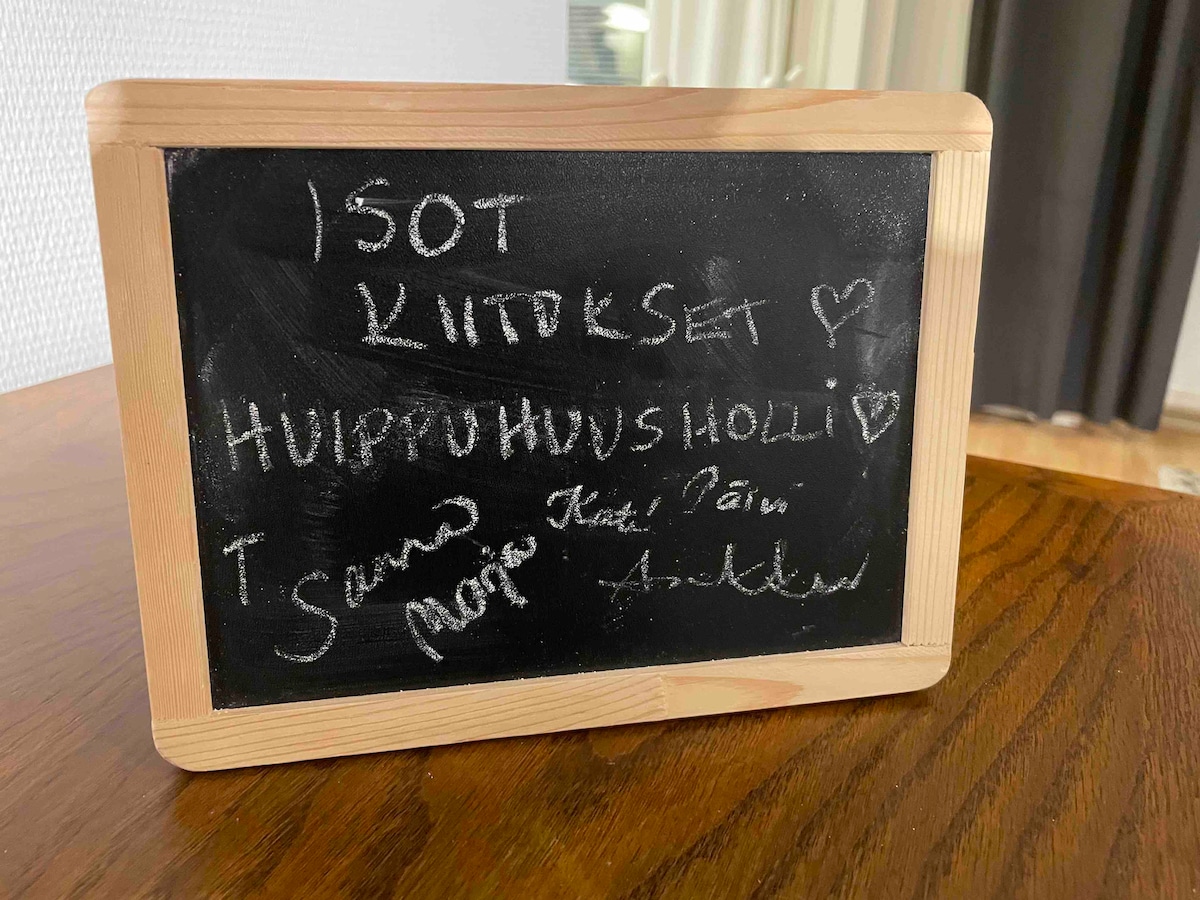 ISOT
KIITOKSET ♡
HUIPPUHUUSHOLLI ♡
Kati Päivi
T Sanna
Marja